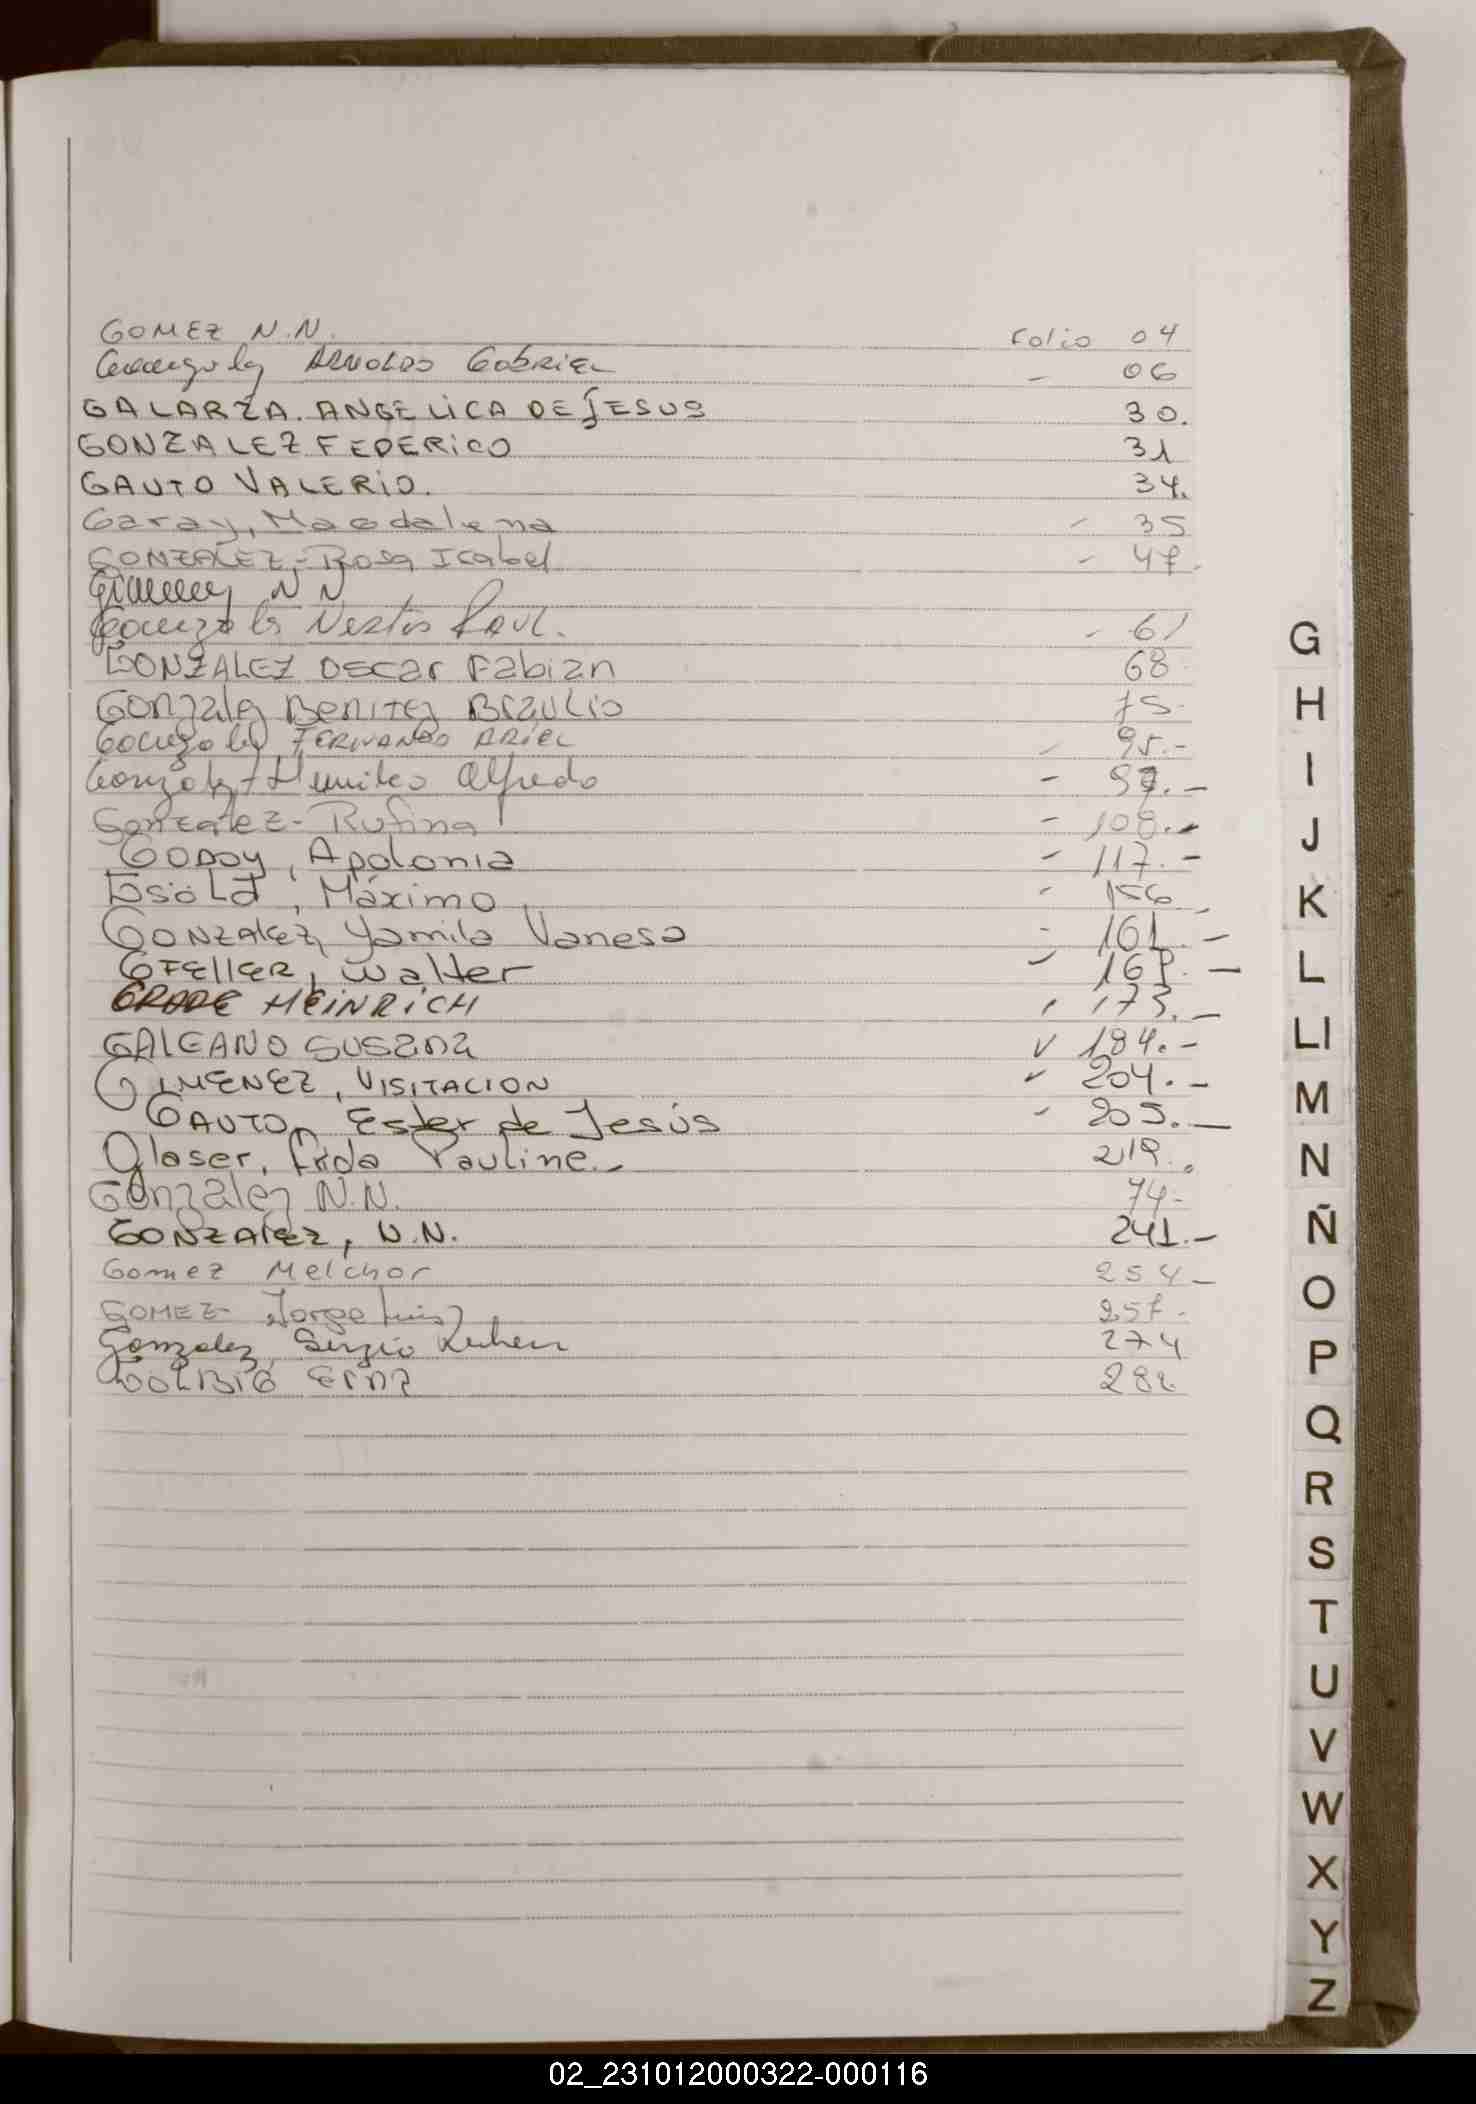 GOMEZ N.N. Folio 04
Gonzalez ARNOLDO GABRIEL - 06
GALARZA. ANGELICA DE JESUS 30.
GONZALEZ FEDERICO 31
GAUTO VALERIO. 34.
Garay, Magdalena - 35
GONZALEZ - Rosa Isabel - 47.
Gimenez N N
Gonzalez Nestor RAUL. - 61
GONZALEZ OSCAR Fabian 68
Gonzalez BENITEZ BRAULIO 75-
Gonzalez FERNANDO ARIEL - 95.-
Gonzalez Alfredo - 97.-
Gonzalez - Rufina - 108.-
GODOY, Apolonia - 117.-
Máximo - 156
GONZALEZ, Yamila Vanesa - 161.-
GFELLER, Walter - 169.-
GRADE HEINRICH - 173.-
GALEANO SUSANA v 184.-
GIMENEZ, VISITACION v 204.-
GAUTO, Ester de Jesús - 205.-
Glaser, Frida Pauline.- 219..
Gonzalez N.N. 74-
GONZALEZ, N.N. 241.-
Gomez Melchor 254-
GOMEZ- Jorge Luis 257-
Gonzalez, Sergio Ruben 274
Erna 282
G
H
I
J
K
L
Ll
M
N
Ñ
O
P
Q
R
S
T
U
V
W
X
Y
Z
02_231012000322-000116